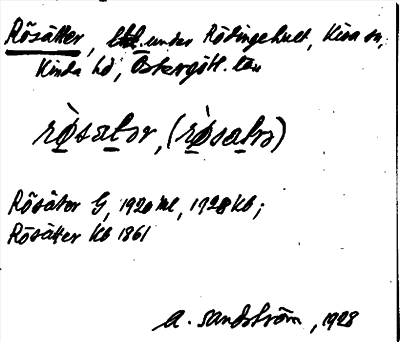 Rösätter, ltd. under Rödingehult, Kisa sn,
Kinda hd, Östergötl. län
rò̱sa̱tər, (rò̱sa̱trə)
Rösätor G, 1920 ml, 1928 Kb;
Rösätter Kb 1861
A. Sandström, 1928